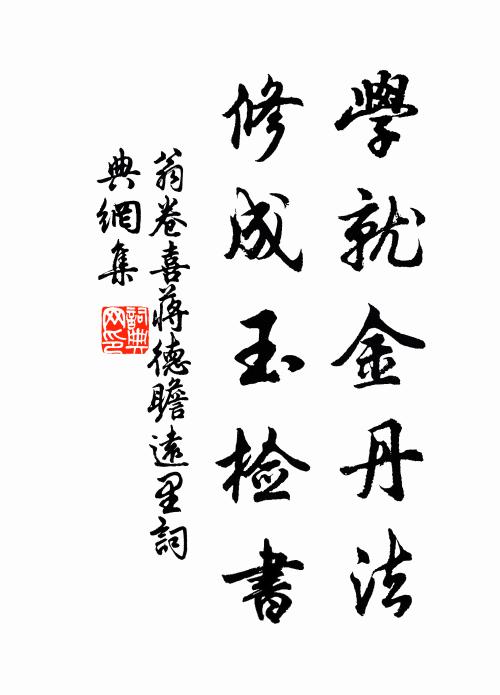 學就金丹法
修成玉检書
翁卷喜蔣德瞻遠里詞
典網集
詞典网印